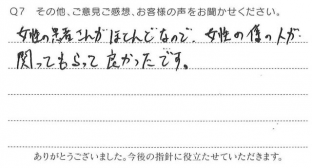 Q7 その他、ご意見ご感想、お客様の声をお聞かせください。
女性の患者さんがほとんどなので、女性の
関ってもらって良かったです。
ありがとうございました。今後の指針に役立たせていただきます。